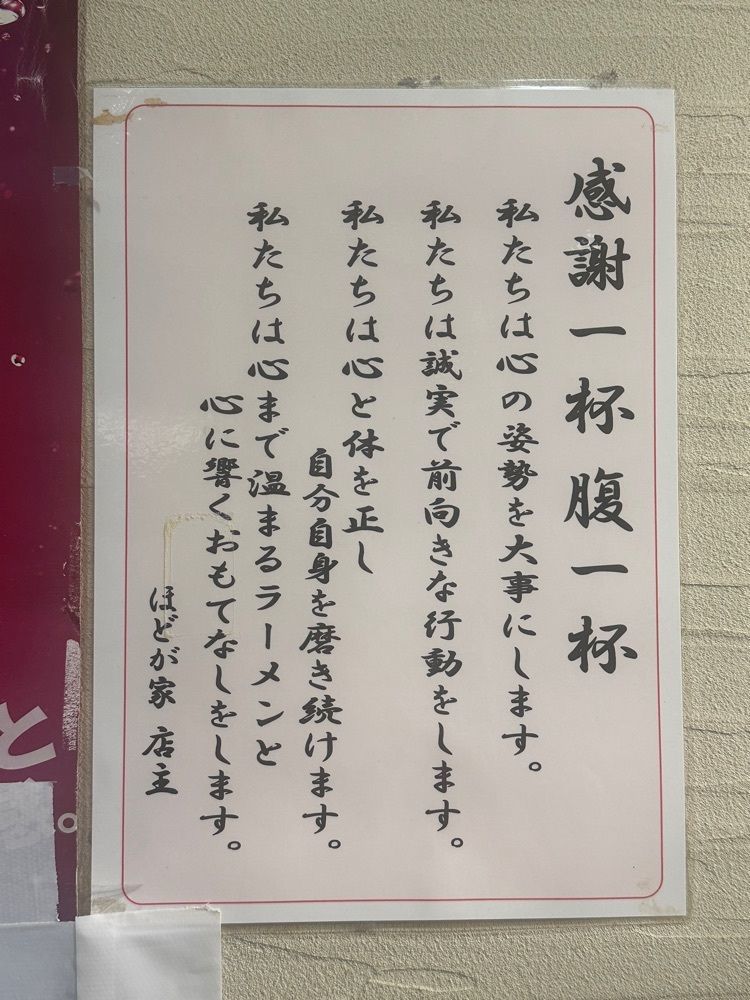 感謝一杯腹一杯
私たちは心の姿勢を大事にします。
私たちは誠実で前向きな行動をします。
私たちは心と体を正し
自分自身を磨き続けます。
私たちは心まで温まるラーメンと
心に響くおもてなしをします。
ほどが家 店主
と
。